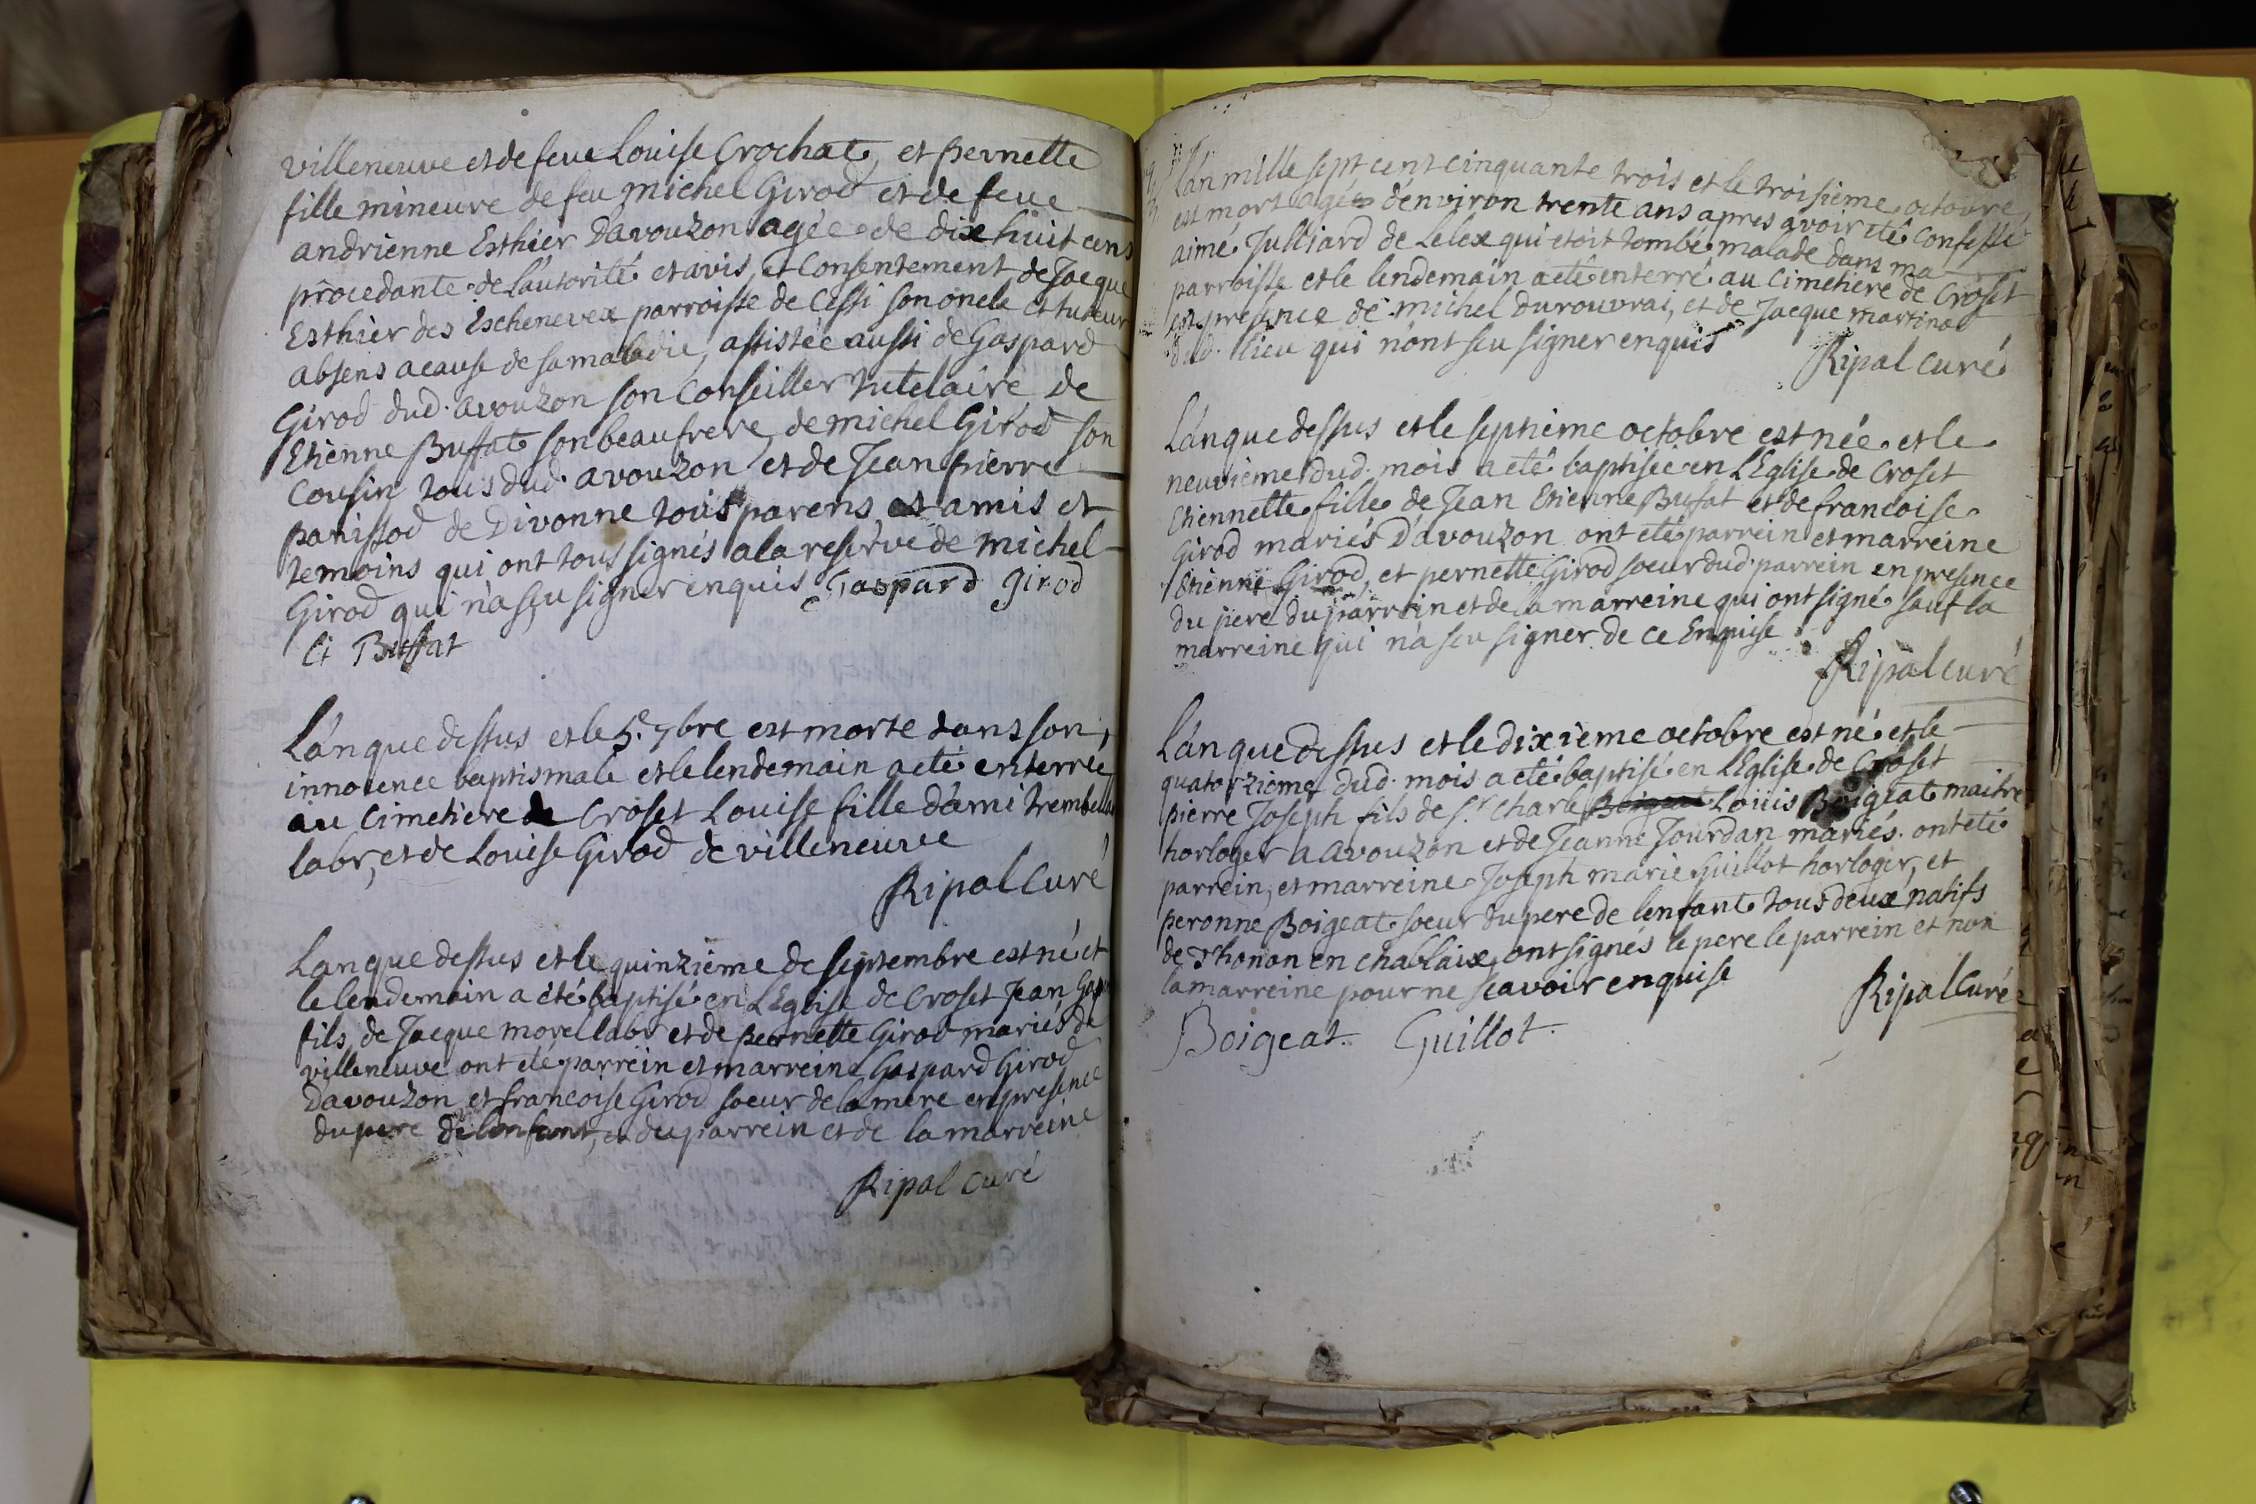 villeneuve et de feue Louise Crochat, et pernette
fille mineure de feu michel Girod et de feue
andrienne Esthier Davouzon agée de dix huit cens
procedante de l'autorité et avis, et Consentement de Jacque
Esthier des Eschenevex parroisse de Cessi son oncle et tuteur
absens a cause de sa maladie, assistée aussi de Gaspard
Girod dud. avouzon son Conseiller tutelaire de
Etienne Buffat son beaufrere, de michel Girod son
Cousin tous dud. avouzon et de Jean pierre
panissod de Divonne tous parens et amis et
temoins qui ont tous signés a la reserve de michel
Girod qui n'a sçu signer enquis Gaspard girod
Et Buffat
L'an que dessus et le 5e. 7bre est morte dans son
innocence baptismale et le lendemain a eté enterrée
au Cimetiere de Croset Louise fille d'ami
labr, et de Louise Girod de villeneuve
Ripal Curé
L'an que dessus et le quinzième de septembre est né et
le lendemain a été baptisé en L'Eglise de Croset Jean
fils, de Jacque morel labr et de pernette Girod mariés de
villeneuve ont eté parrein et marreine Gaspard Girod
Davouzon et francoise Girod soeur de la mere en presence
du pere de lenfant, et du parrein et de la marreine
Ripal Curé
L'an mille sept cent cinquante trois et le troisième octobre
est mort agé d'environ trente ans apres avoir eté Confessé
aimé Julliard de Lelex qui etoit tombé malade dans ma
parroisse et le lendemain a eté enterré au cimetiere de Croset
en presence de michel durouvrai, et de Jacque martinod
dud. lieu qui n'ont seu signer enquis
Ripal curé
L'an que dessus et le septième octobre est née et le
neuvième dud. mois a eté baptisée en L'Eglise de Croset
Etiennette fille de Jean Etienne Buffat et de francoise
Girod mariés D'avouzon ont eté parrein et marreine
Etienne Girod, et pernette Girod soeur dud parrein en presence
du pere du parrein et de la marreine qui ont signé sauf la
marreine qui n'a seu signer de ce Enquise
Ripal curé
L'an que dessus et le dixième octobre est né et le
quatorzième dud. mois a eté baptisé en L'Eglise de Croset
pierre Joseph fils de Sr. Charle Boigeat Louis Boigeat maitre
horloger a avouzon et de Jeanne Jourdan mariés. ont eté
parrein, et marreine Joseph marie Guillot horloger, et
peronne Boigeat soeur du pere de lenfant tous deux natifs
de Thonon en Chablaix, ont signés le pere le parrein et non
la marreine pour ne sçavoir enquise
Ripal Curé
Boigeat. Guillot.